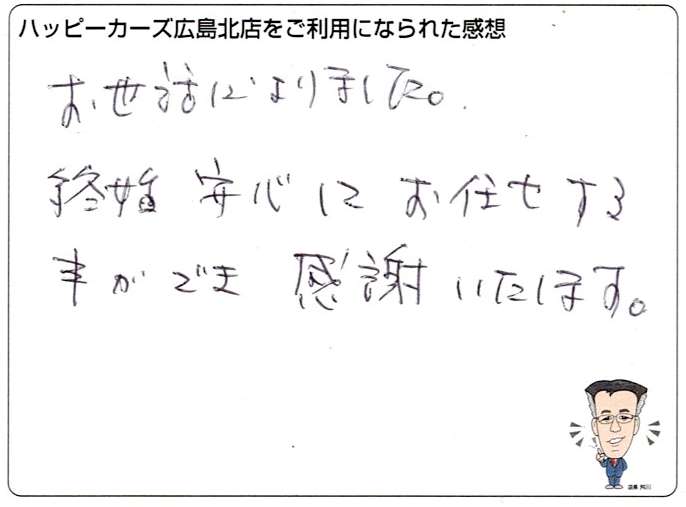 ハッピーカーズ広島北店をご利用になられた感想
お世話になりました。
終始 安心に お任せする
事ができ 感謝いたします。